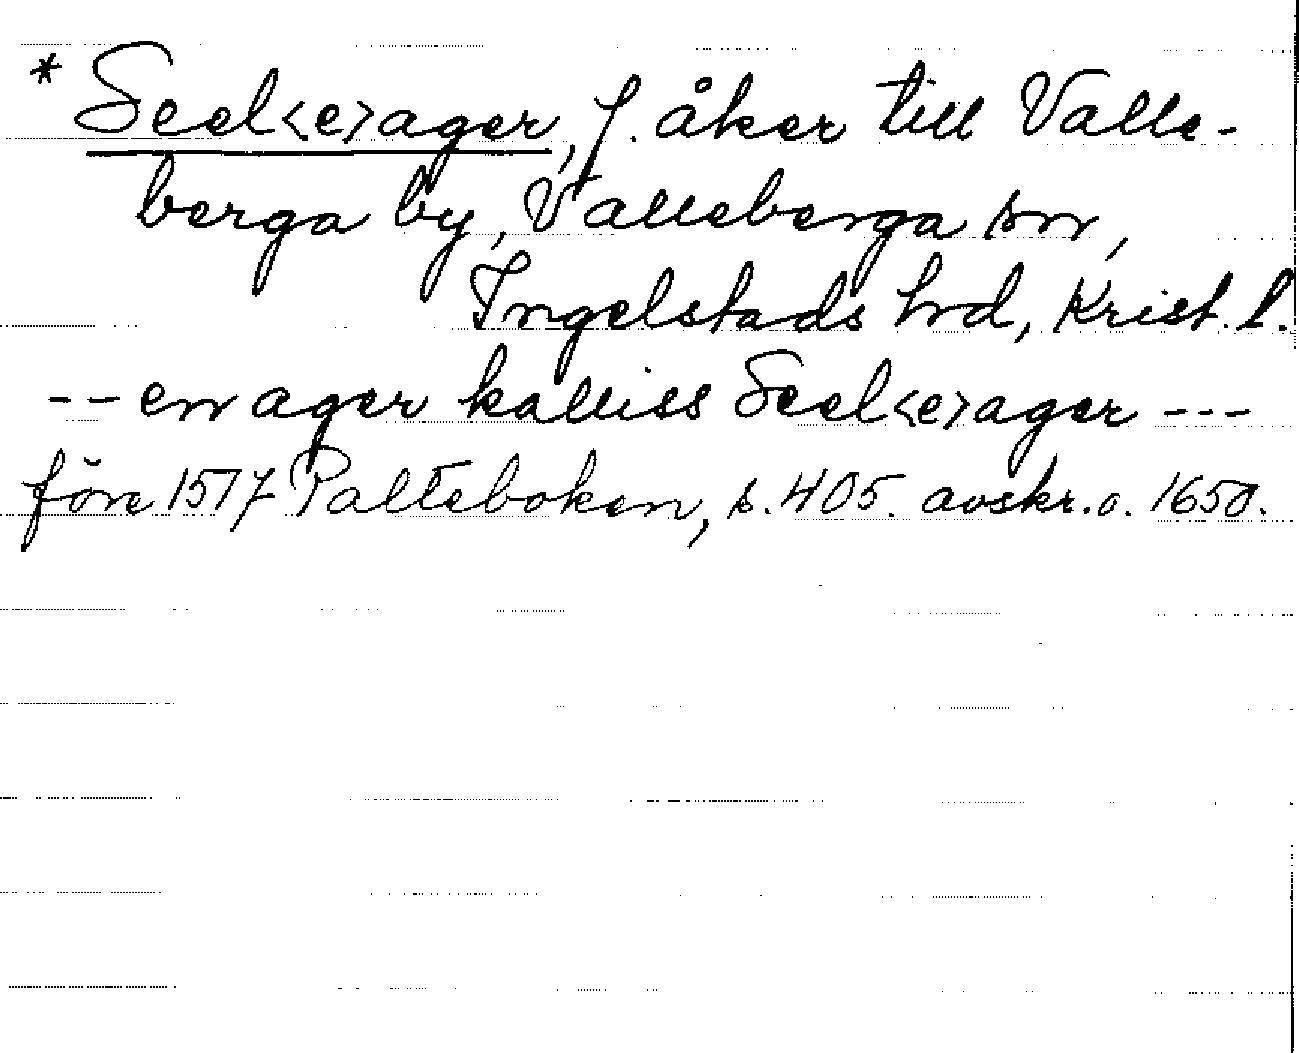 * Seel<e>ager, f. åker till Valle-
berga by, Valleberga sn,
Ingelstads hrd, Krist. l.
-- en ager kalliss Seel<e>ager ---
före 1517 Palteboken, s. 405. avskr. o. 1650.